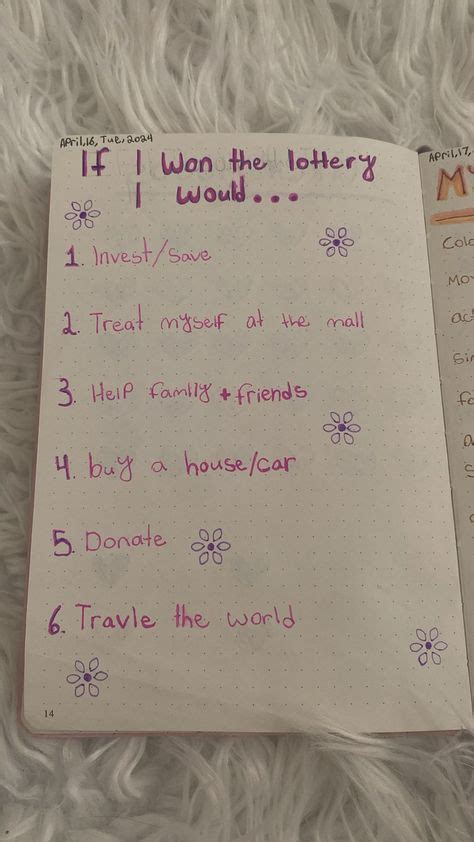 April,16, Tue, 2024
If I Won the lottery
I would...
1. Invest/Save
2. Treat myself at the mall
3. Help family + friends
4. buy a house/car
5. Donate
6. Travle the world
14
April,17,